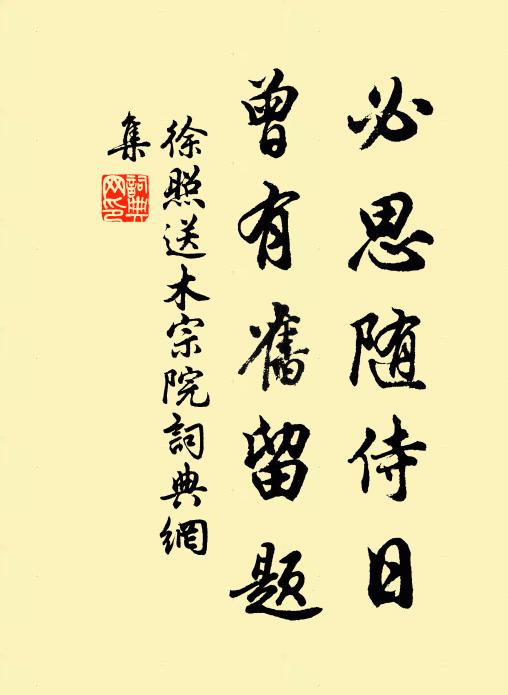 必思随侍日
曾有舊留题
徐照送木宗院詞典網
集
詞典网印